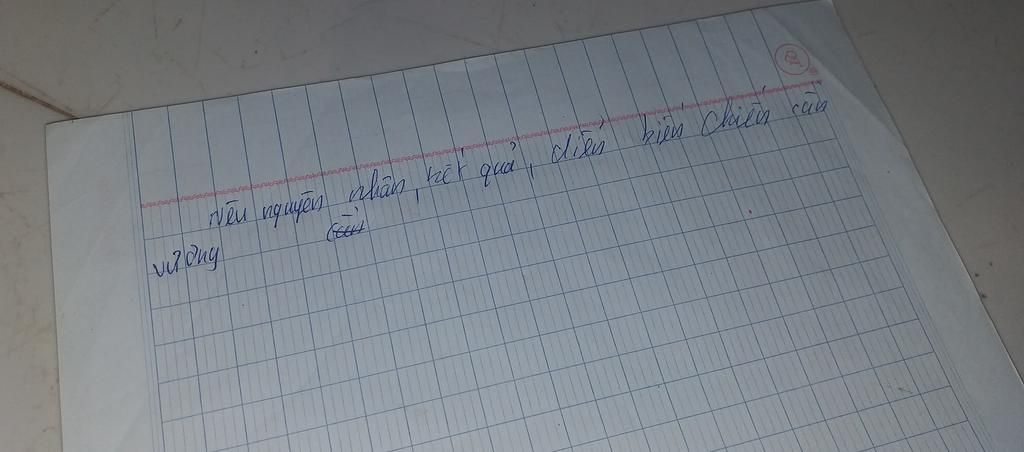 Nêu nguyên nhân, kết quả, diễn biến chiến cần
vương